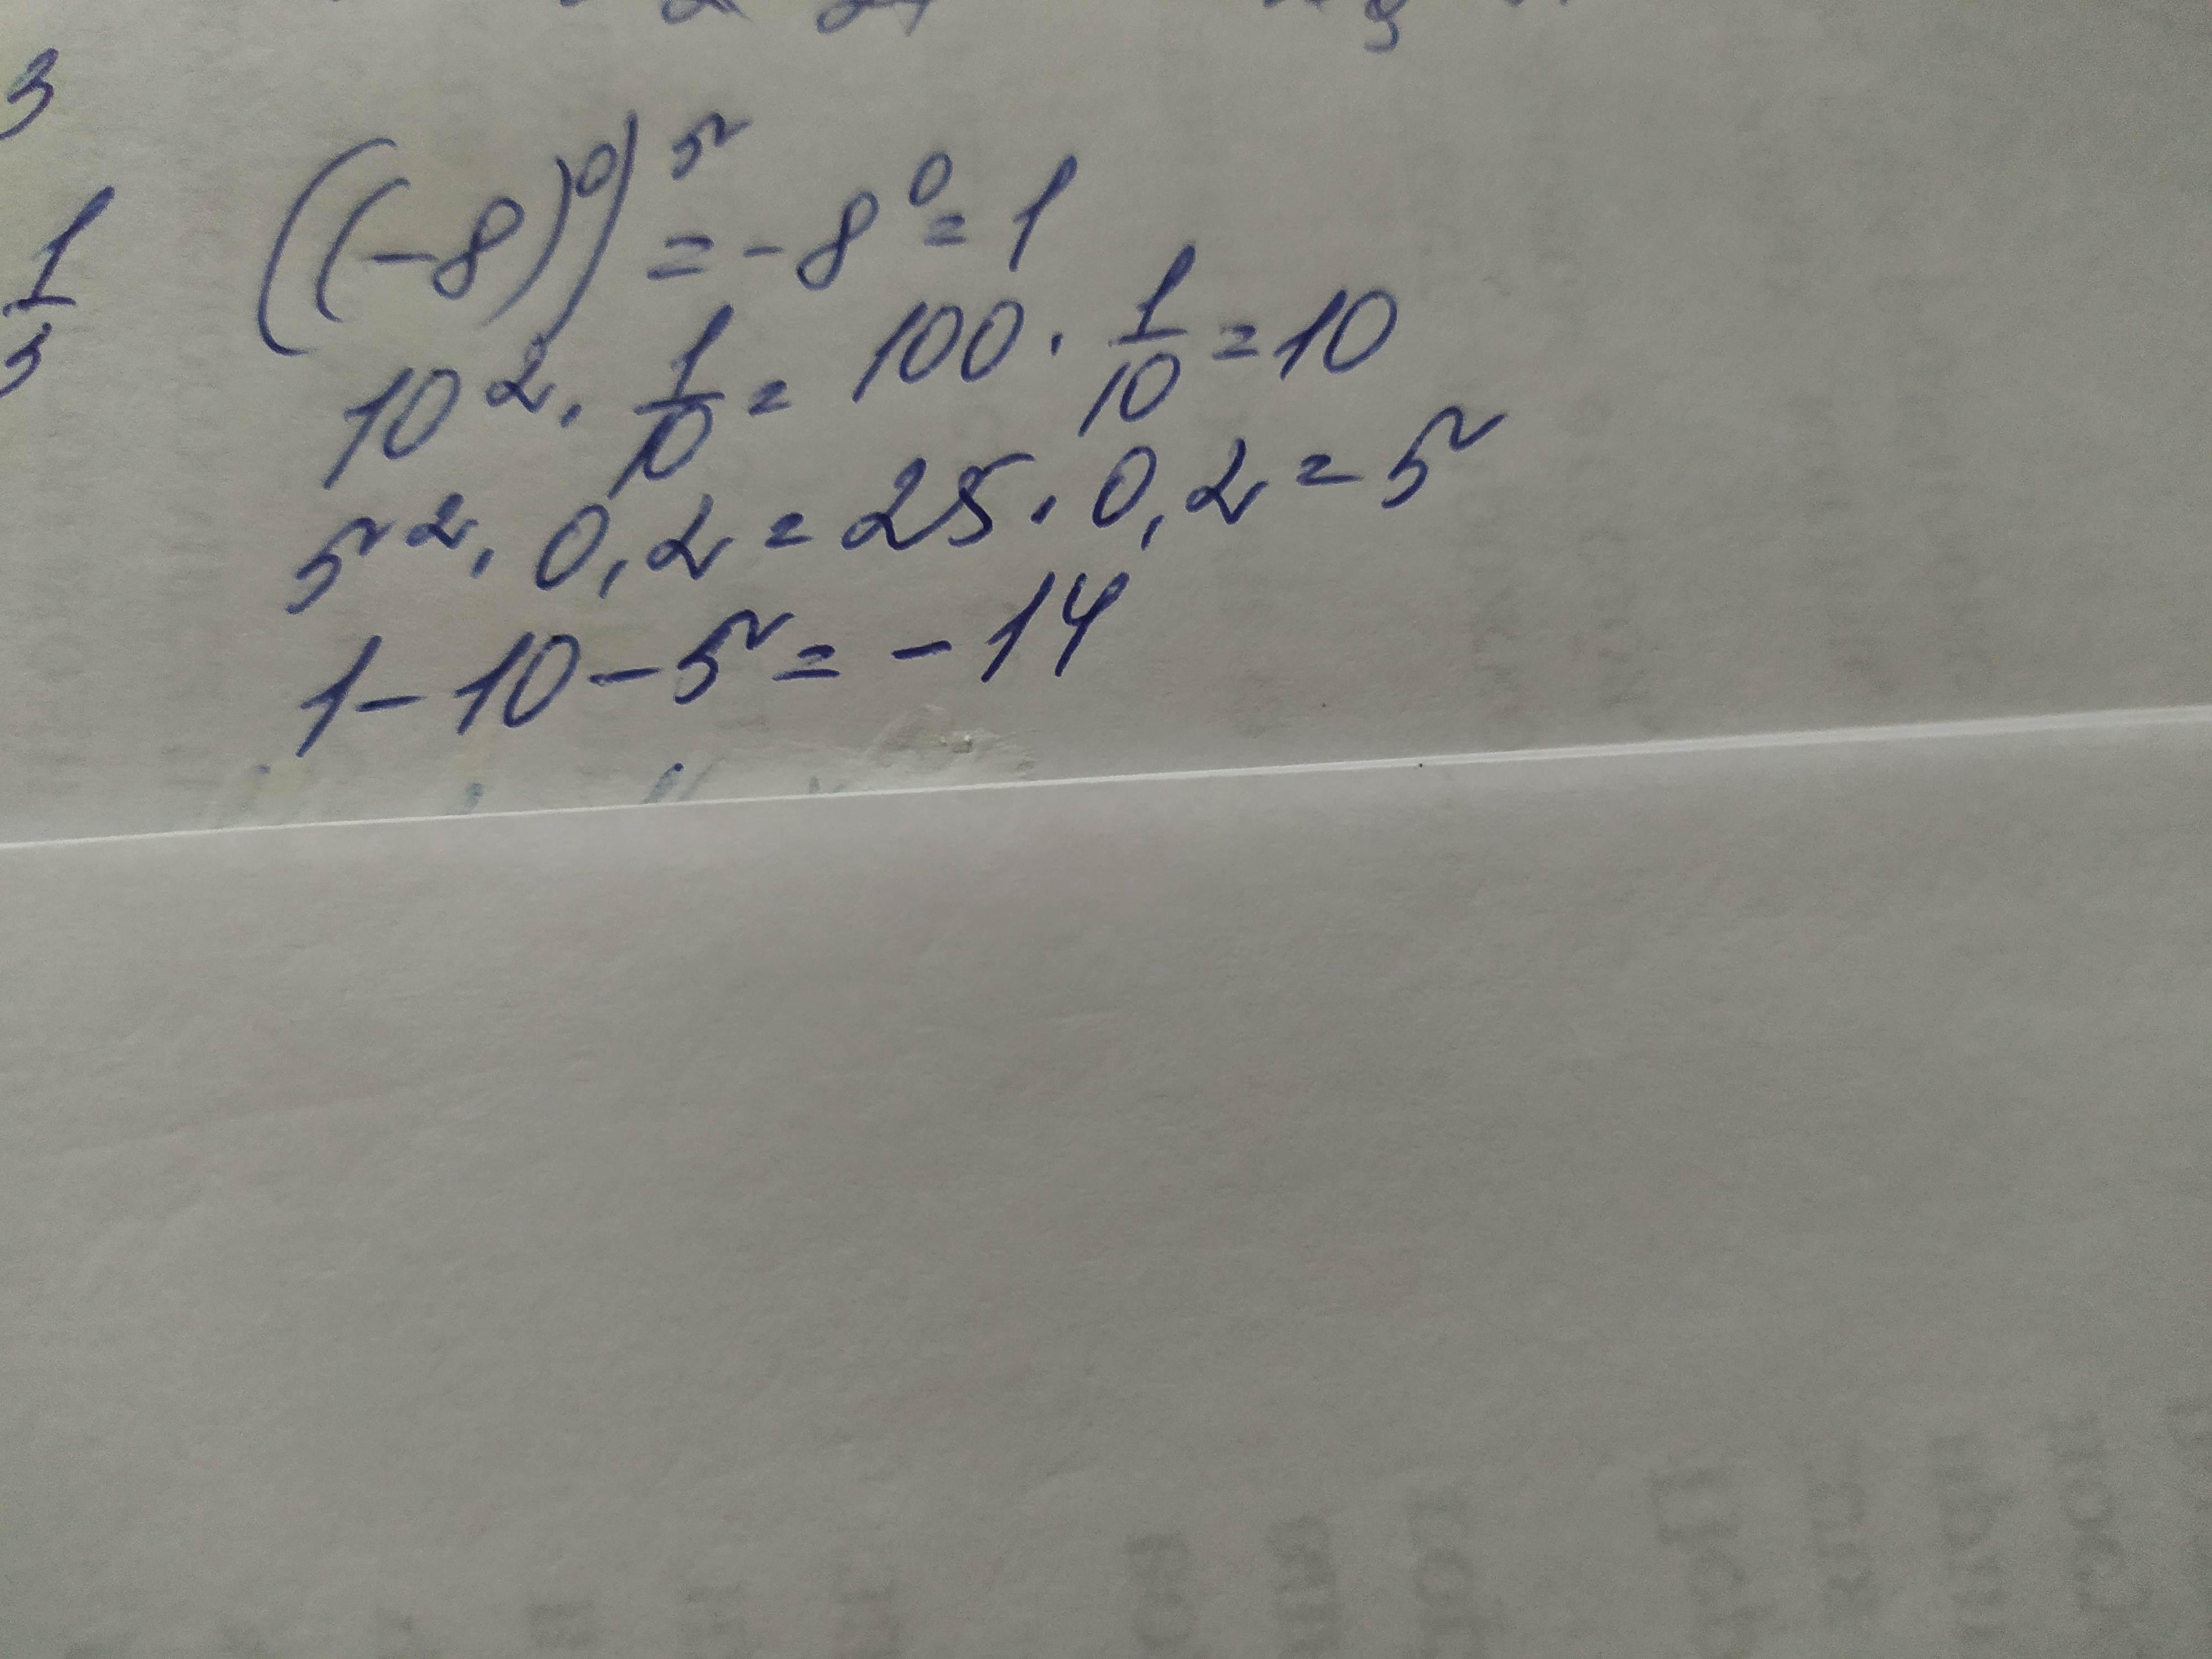 3
1/5
((-8)⁰)⁵ = -8⁰ = 1
10² · 1/10 = 100 · 1/10 = 10
5² · 0,2 = 25 · 0,2 = 5
1 - 10 - 5 = -14